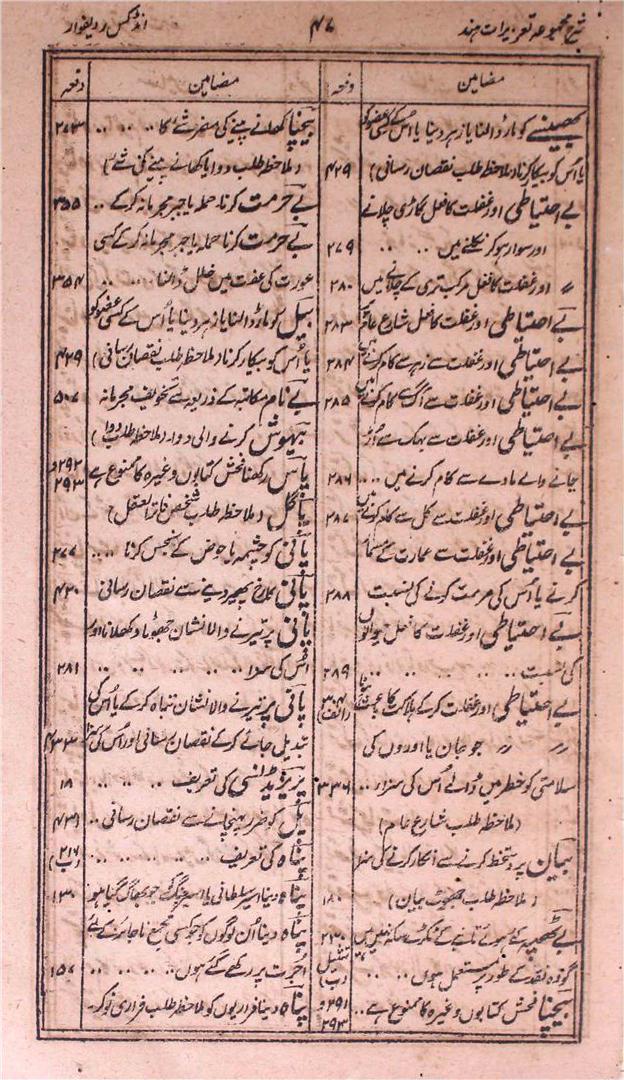 شرح مجموعہ تعزیرات ہند
۴۷
انڈکس ردیفوار
مضامین
دفعہ
بھینسے کو مار ڈالنا یا زہر دینا یا اُس کے کسی عضو کو
یا اُس کو بیکار کرنا (ملاحظہ طلب نقصان رسانی) ۴۲۹
بے احتیاطی اور غفلت کا فعل گاڑی چلانے
اور سوار ہو کر نکلنے میں .. .. ۲۷۹
〃 اور غفلت کا فعل مرکب تری کے چلانے میں ۲۸۰
بے احتیاطی اور غفلت کا فعل شارع عام ۲۸۳
بے احتیاطی اور غفلت سے زہر سے کام کرنے میں ۲۸۴
بے احتیاطی اور غفلت سے آگ سے کام کرنے میں ۲۸۵
بے احتیاطی اور غفلت سے بھک سے اُڑ
جانے والے مادے سے کام کرنے میں .. ۲۸۶
بے احتیاطی اور غفلت سے کل سے کام کرنے میں ۲۸۷
بے احتیاطی اور غفلت سے عمارت کے مسمار
کرنے یا اُس کی مرمت کرنے کی نسبت ۲۸۸
بے احتیاطی اور غفلت کا فعل حیوانوں
کی نسبت .. .. .. .. ۲۸۹
بے احتیاطی اور غفلت کر کے ہلاکت کا باعث ۳۰۴ (الف)
〃 〃 جو جان یا اوروں کی
سلامتی کو خطر میں ڈالے اُس کی سزا .. ۳۳۶
(ملاحظہ طلب شارع عام)
بیان پر دستخط کرنے سے انکار کرنے کی سزا
(ملاحظہ طلب جھوٹ بیان) ۱۸۰
بے ٹھپہ کے ہوئے تانبے کے ٹکڑے سکہ نہیں ہیں ۲۳۰ تمثیل (ب)
گو وہ نقد کے طور پر مستعمل ہوں ..
بیچنا فحش کتابوں وغیرہ کا ممنوع ہے .. ۲۹۱ و ۲۹۳
مضامین
دفعہ
بیچنا کھانے پینے کی مضر شے کا .. .. ۲۷۳
(ملاحظہ طلب دوا یا کھانے پینے کی شے)
بے حرمت کرنا، حملہ یا جبر مجرمانہ کر کے .. ۳۵۵
بے حرمت کرنا حملہ یا جبر مجرمانہ کر کے کسی
عورت کی عفت میں خلل ڈالنا .. .. ۳۵۴
بیل کو مار ڈالنا یا زہر دینا یا اُس کے کسی عضو کو
یا اُس کو بیکار کرنا (ملاحظہ طلب نقصان رسانی) ۴۲۹
بے نام مکاتبہ کے ذریعہ سے تخویف مجرمانہ ۵۰۷
بیہوش کرنے والی دوا۔ (ملاحظہ طلب دوا)
پاس رکھنا فحش کتابوں وغیرہ کا ممنوع ہے ۲۹۲ و ۲۹۳
پاگل (ملاحظہ طلب شخص فاتر العقل)
پانی کو چشمہ یا حوض کے نجس کرنا .. ۲۷۷
پانی کا رخ پھیر دینے سے نقصان رسانی ۴۳۰
پانی پر تیرنے والا نشان جھوٹا دکھلانا اور
اُس کی سزا .. .. .. .. ۲۸۱
پانی پر تیرنے والا نشان تباہ کر کے یا اُس کی
تبدیل جائے کر کے نقصان رسانی اور اُس کی سزا ۴۳۳
پریزیڈنسی کی تعریف .. .. ۱۸
پل کو ضرر پہنچانے سے نقصان رسانی .. ۴۳۱
پناہ کی تعریف .. .. .. ۲۱۶ (ب)
پناہ دینا اسیر سلطانی یا اسیر جنگ کے جو بھاگ گیا ہو ۱۳۰
پناہ دینا اُن لوگوں کو جو کسی مجمع ناجائز کے لئے
اُجرت پر رکھے گئے ہوں .. .. ۱۵۷
پناہ دینا فراریوں کو ملاحظہ طلب فراری نوکر۔